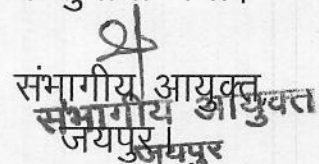 संभागीय आयुक्त
संभागीय आयुक्त
जयपुर।
जयपुर